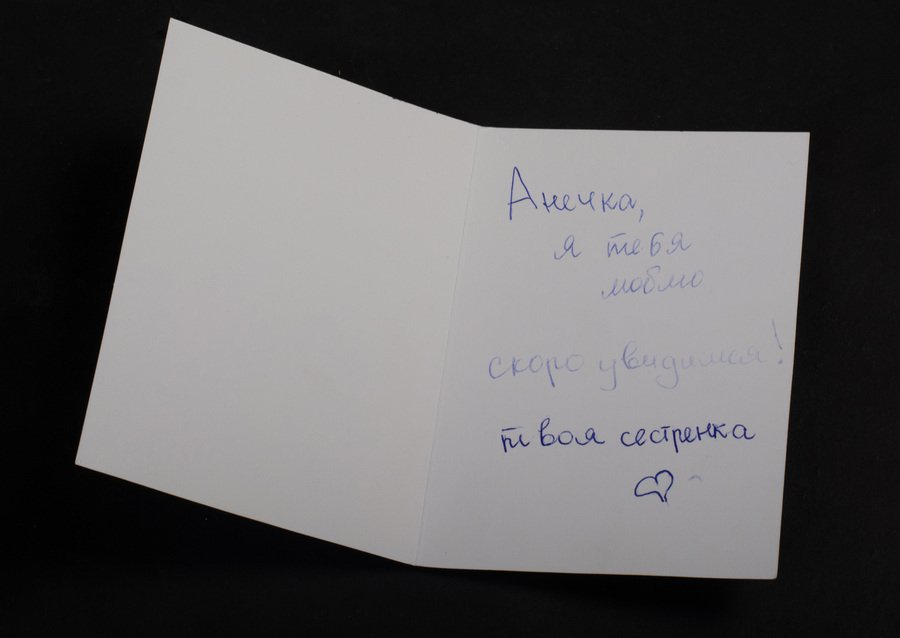 Анечка,
я тебя
люблю
скоро увидимся!
твоя сестренка